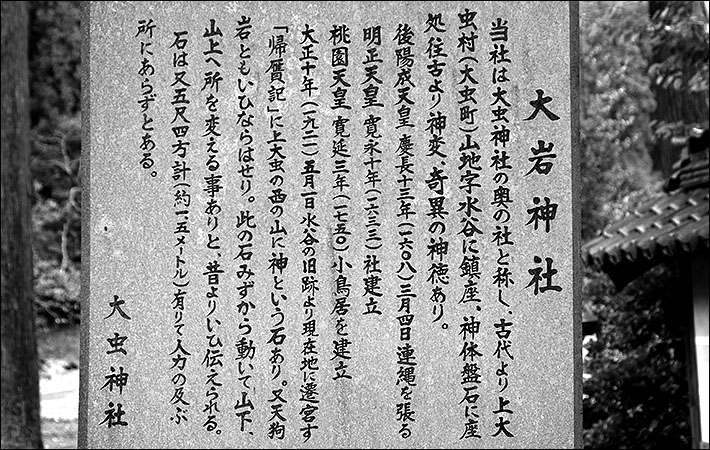 大岩神社
当社は大虫神社の奥の社と称し、古代より上大
虫村（大虫町）山地字水谷に鎮座、神体盤石に座
処往古より神変、奇異の神徳あり。
後陽成天皇 慶長十三年（一六〇八）三月四日連縄を張る
明正天皇 寛永十年（一六三三）社建立
桃園天皇 寛延三年（一七五〇）小鳥居を建立
大正十年（一九二一）五月一日水谷の旧跡より現在地に遷宮す
「帰鴈記」に上大虫の西の山に神という石あり。又天狗
岩ともいひならはせり。此の石みずから動いて山下、
山上へ所を変える事ありと、昔よりいひ伝えられる。
石は又五尺四方計（約一.五メートル）有りて人力の及ぶ
所にあらずとある。
大虫神社